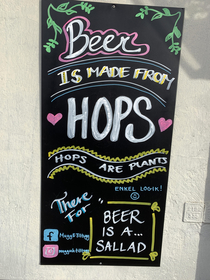 Beer
IS MADE FROM
HOPS
HOPS ARE PLANTS
ENKEL LOGIK!
There
For
BEER
IS A...
SALLAD